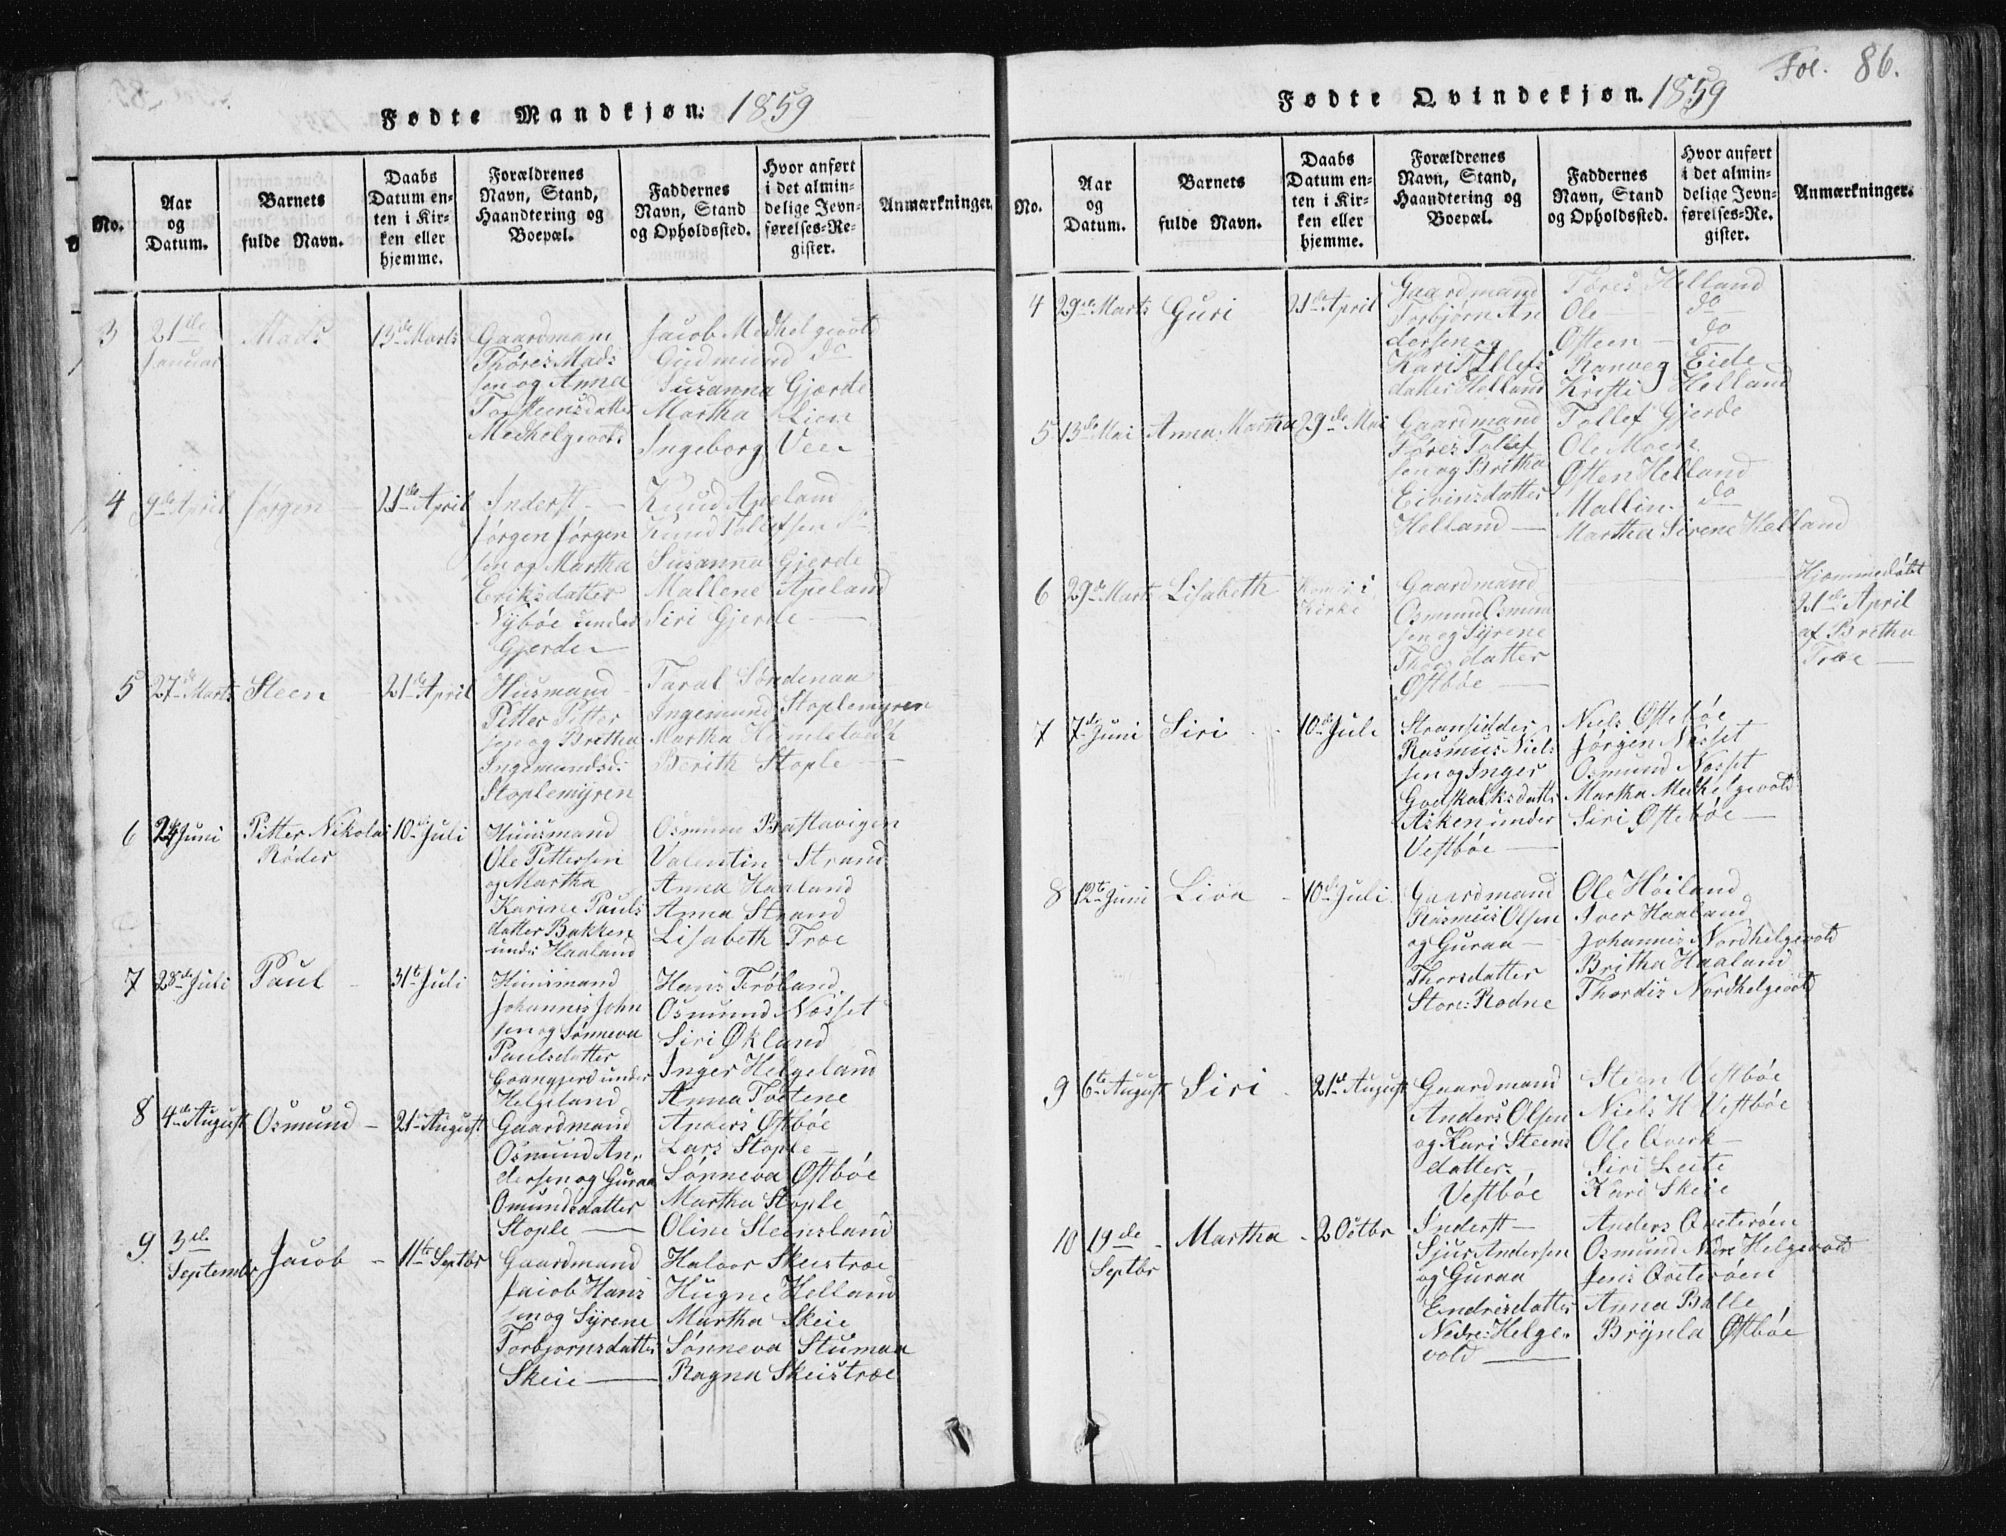 Fødte Mandkjøn: 1859
No.
Aar og Datum.
Barnets fulde Navn.
Daabs Datum enten i Kirken eller hjemme.
Forældrenes Navn, Stand, Haandtering og Boepæl.
Faddernes Navn, Stand og Opholdssted.
Hvor anført i det almindelige Jevnførelses-Register.
Anmærkninger.
3 21de Januar Mads 15de Marts
Gaardmand
Thøres Mads
sen og Anna
Torsteensdatter
Meihelgevold
Jacob Meihelgevold
Gudmund do
Susanna Gjerde
Martha Lien
Ingeborg Vee
4 9de April Jørgen 21de April
Inderst
Jørgen Jørgen
sen og Martha
Eriksdatter
Nybøe under
Gjerde
Knud Apeland
Knud Tollefsen
Susanna Gjerde
Mallene Apeland
Siri Gjerde
5 27de Marts Steen 21de April
Husmand
Pitter Pitter
sen og Bretha
Ingemundsd:
Stoplemyren
Taral Søndenaa
Ingemund Stoplemyren
Martha
Berith Stople
6 Juni Pitter Nikolai Røder 10de Juli
Huusmand
Ole Pittersen
og Martha
Karine Pauls
datter Bakken
under Haaland
Osmund Brattavigen
Valentin Strand
Anna Haaland
Anna Strand
Lisabeth Træ
7 28de Juli Paul 31te Juli
Huusmand
Johannis John
sen og Sønneva
Paulsdatter
under
Helgeland
Hans Frøland
Osmund Nosset
Siri Økland
Inger Helgeland
Anna Tvetene
8 4de August Osmund 21de August
Gaardmand
Osmund An
dersen og Guraa
Omundsdatter
Stople
Anders Østbøe
Lars Stople
Sønneva Østbøe
Martha Stople
Oline Steensland
9 3de September Jacob 11te Septbr
Gaardmand
Jacob Hans
sen og Syrene
Torbjornsdatter
Skeie
Halvor Skeistræ
Hugne Helland
Martha Skeie
Sønneva Stumaa
Ragna Skeistræ
Fol. 86.
Fødte Qvindekjøn. 1859
No.
Aar og Datum.
Barnets fulde Navn.
Daabs Datum enten i Kirken eller hjemme.
Forældrenes Navn, Stand, Haandtering og Boepæl.
Faddernes Navn, Stand og Opholdssted.
Hvor anført i det almindelige Jevnførelses-Register.
Anmærkninger.
4 29de Marts Guri 21de April
Gaardmand
Torbjørn An
dersen og
Kari Tollefs
datter Helland
Tøres Helland
Ole do
Østen do
Ranveg Eide
Kristi Helland
5 13de Mai Anna Martha 29de Mai
Gaardmand
Tøres Tollef
sen og Britha
Eivinsdatter
Helland
Tollef Gjerde
Ole Moen
Østen Helland
Mallin do
Martha Sirene Helland
6 29de Marts Lisabeth Kirke
Gaardmand
Osmund Osmund
sen og Syrene
Thorsdatter
Østbøe
Hjemmedøbt
21de April
af Bretha
Træ
7 7de Juni Siri 10de Juli
Strandsidder
Rasmus Niels
sen og Inger
Godskalksdatter
Asken under
Vestbøe
Niels Østebøe
Jørgen Nosset
Osmund Nosset
Martha Meihelgevold
Siri Østebøe
8 12te Juni Liva 10de Juli
Gaardmand
Rasmus Olsen
og Guraa
Thorsdatter
Store Rodne
Ole Høiland
Iver Haaland
Johannis Nordhelgevold
Britha Haaland
Thordis Nordhelgevold
9 6te August Siri 21de August
Gaardmand
Anders Olsen
og Kari Steens
datter
Vestbøe
Steen Vestbøe
Niels H Vestbøe
Ole Qverk
Siri Leite
Kari Skeie
10 19de Septbr Martha 2 Octbr
Inderst
Sjur Andersen
og Guraa
Endresdatter
Nedre Helge
vold
Anders Qveterøen
Osmund Nedre Helgevold
Jens Qveterøen
Anna Balle
Brynla Østbøe